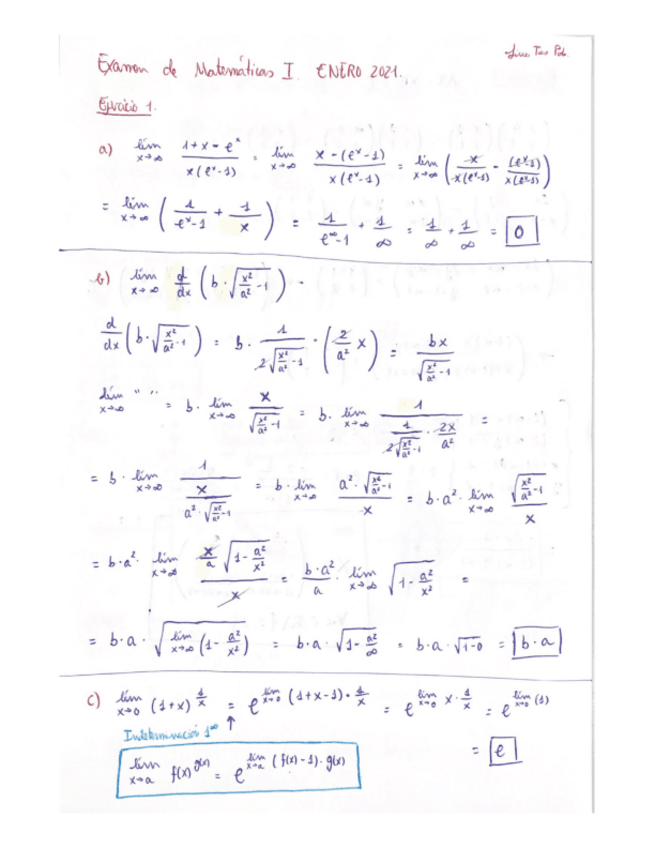 Examen de Matemáticas I. ENERO 2021.
Ejercicio 1.
a) lím x→∞ (1+x-e^x)/(x(e^x-1)) = lím x→∞ (x-(e^x-1))/(x(e^x-1)) = lím x→∞ (x/(x(e^x-1)) - (e^x-1)/(x(e^x-1)))
= lím x→∞ (1/(e^x-1) + 1/x) = 1/(e^∞-1) + 1/∞ = 1/∞ + 1/∞ = 0
b) lím x→∞ d/dx (b·√(x²/a² -1)) =
d/dx (b·√(x²/a² -1)) = b · 1/(2√(x²/a² -1)) · (2/a² x) = bx/√(x²/a² -1)
lím x→∞ " " = b · lím x→∞ x/√(x²/a² -1) = b · lím x→∞ 1/(1/(2√(x²/a² -1)) · 2x/a²) =
= b · lím x→∞ 1/(x/(a²·√(x²/a² -1))) = b · lím x→∞ (a²·√(x²/a² -1))/x = b·a² · lím x→∞ √(x²/a² -1)/x
= b·a² · lím x→∞ (x/a √(1- a²/x²))/x = b·a²/a · lím x→∞ √(1- a²/x²) =
= b·a · √(lím x→∞ (1- a²/x²)) = b·a · √(1- a²/∞) = b·a·√(1-0) = b·a
c) lím x→0 (1+x)^(1/x) = e^(lím x→0 (1+x-1)·1/x) = e^(lím x→0 x·1/x) = e^(lím x→0 (1))
Indeterminación 1^∞ ↑
= e
lím x→a f(x)^g(x) = e^(lím x→a (f(x)-1)·g(x))